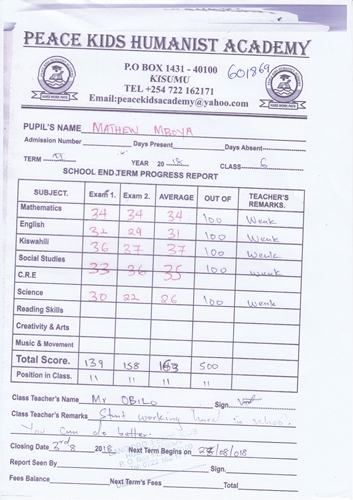 PEACE KIDS HUMANIST ACADEMY
P.O BOX 1431 - 40100
KISUMU
TEL +254 722 162171
Email:peacekidsacademy@yahoo.com
601869
PUPIL'S NAME MATHEW MBOYA
Admission Number Days Present Days Absent
TERM II YEAR 2018 CLASS 6
SCHOOL END TERM PROGRESS REPORT
SUBJECT. Exam 1. Exam 2. AVERAGE OUT OF TEACHER'S REMARKS.
Mathematics 34 34 34 100 Weak
English 32 29 31 100 Weak
Kiswahili 36 37 37 100 Weak
Social Studies
C.R.E 33 36 35 100 Weak
Science 30 22 26 100 Weak
Reading Skills
Creativity & Arts
Music & Movement
Total Score. 139 158 163 500
Position in Class. 11 11 11 11
Class Teacher's Name Mr OBILO Sign.
Class Teacher's Remarks Start working hard in school.
You can do better.
Closing Date 3rd 8 2018 Next Term Begins on 27/08/018
Report Seen By Sign.
Fees Balance Next Term's Fees Total